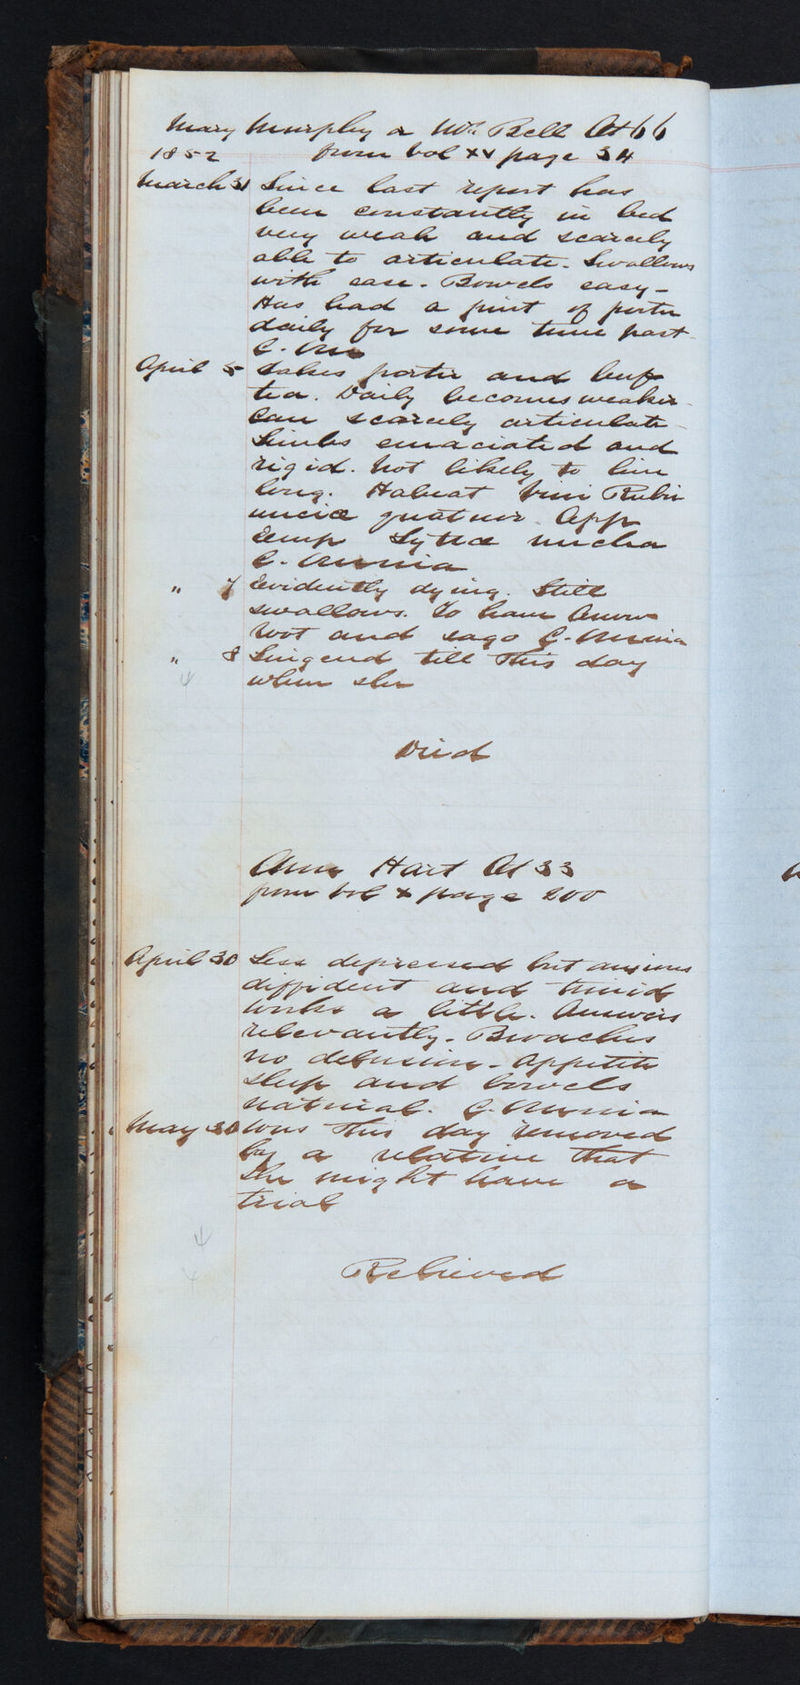 Mary Murphy or McBell Æt 66
1852 from Vol XV page 34
March 31 Since last report has
been constantly in bed
very weak and scarcely
able to articulate. Swallows
with ease. Bowels easy -
Has had a pint of porter
daily for some time past
C. Om
April 5 Takes porter and beef
tea. Daily becomes weaker
Can scarcely articulate
Limbs emaciated and
rigid. Not likely to live
long. Habeat Vini Rubri
unciæ quatuor. App
Emp Lyttæ nucha
C. Omnia
" 7 Evidently dying. Still
swallows. To have Arrow
root and sago C. Omnia
" 8 Lingered till this day
when she
Died
Ann Hart Æt 33
from Vol X page 200
April 30 Less depressed but anxious
diffident and timid
works a little. Answers
relevantly. Broaches
no delusion. Appetite
sleep and bowels
natural. C. Omnia
May 30 Was this day removed
by a relative that
she might have a
trial
Relieved